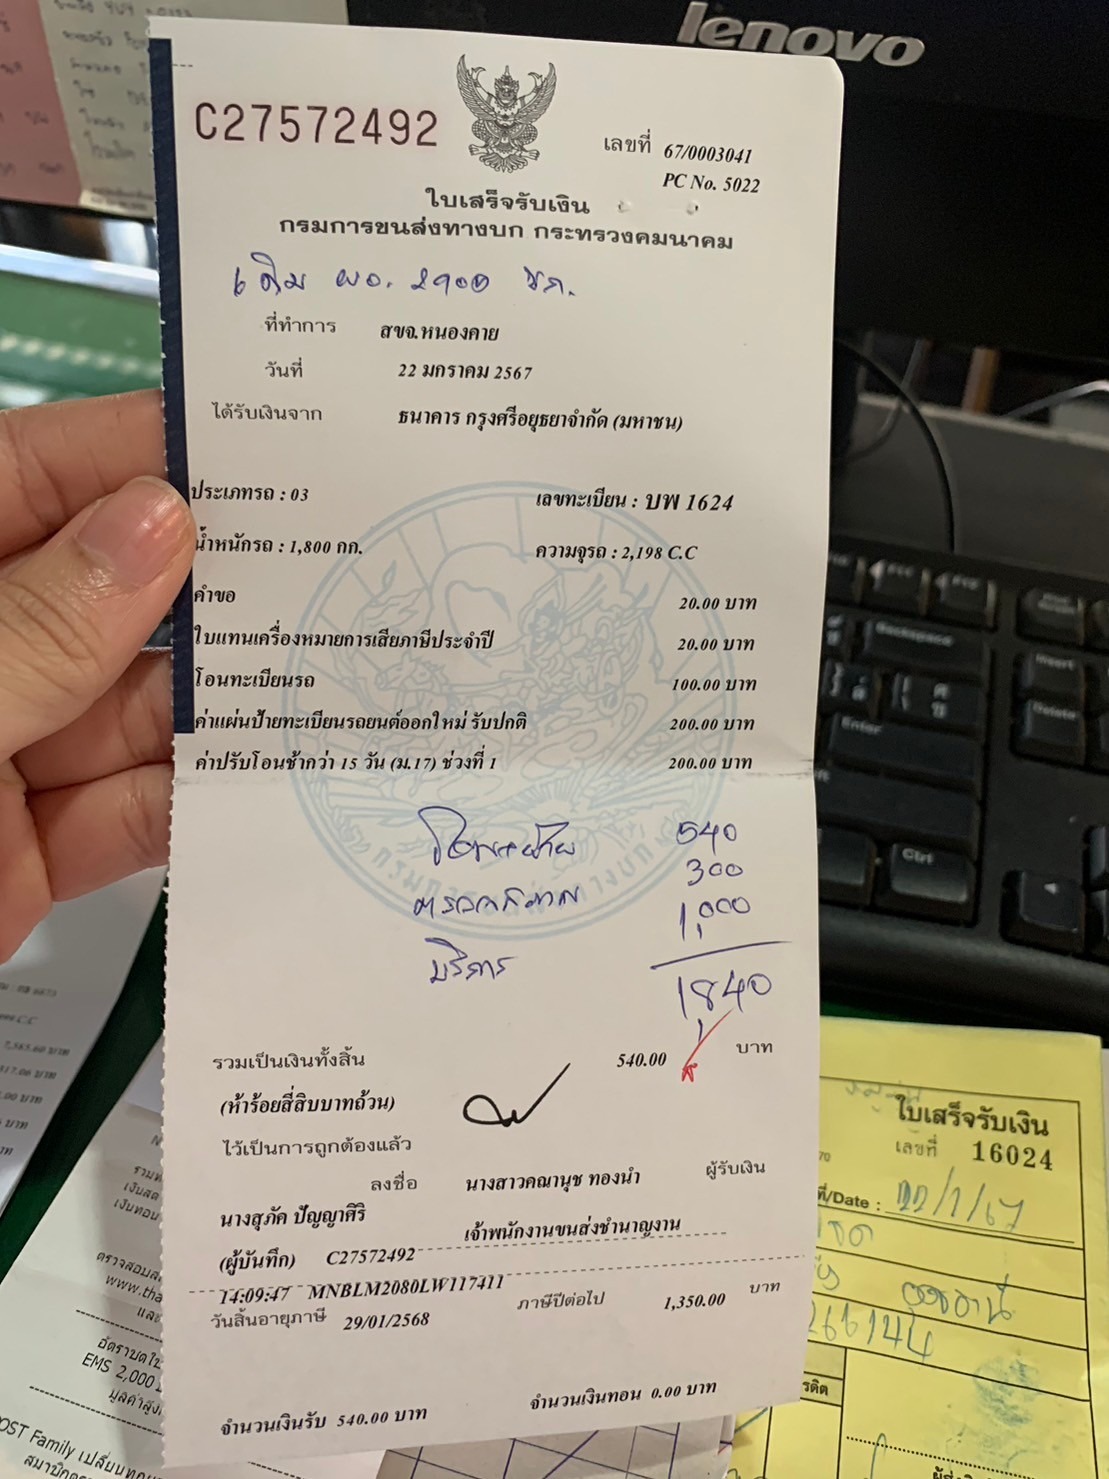 lenovo
C27572492
เลขที่ 67/0003041
PC No. 5022
ใบเสร็จรับเงิน
กรมการขนส่งทางบก กระทรวงคมนาคม
เดิม ผอ. 2900 ชภ.
ที่ทำการ สขจ.หนองคาย
วันที่ 22 มกราคม 2567
ได้รับเงินจาก ธนาคาร กรุงศรีอยุธยาจำกัด (มหาชน)
ประเภทรถ : 03 เลขทะเบียน : บพ 1624
น้ำหนักรถ : 1,800 กก. ความจุรถ : 2,198 C.C
คำขอ 20.00 บาท
ใบแทนเครื่องหมายการเสียภาษีประจำปี 20.00 บาท
โอนทะเบียนรถ 100.00 บาท
ค่าแผ่นป้ายทะเบียนรถยนต์ออกใหม่ รับปกติ 200.00 บาท
ค่าปรับโอนช้ากว่า 15 วัน (ม.17) ช่วงที่ 1 200.00 บาท
540
ตรวจสภาพ 300
บริการ 1,000
1,840
รวมเป็นเงินทั้งสิ้น 540.00 บาท
(ห้าร้อยสี่สิบบาทถ้วน)
ไว้เป็นการถูกต้องแล้ว
ลงชื่อ นางสาวคณานุช ทองนำ ผู้รับเงิน
นางสุภัค ปัญญาศิริ เจ้าพนักงานขนส่งชำนาญงาน
(ผู้บันทึก) C27572492
14:09:47 MNBLM2080LW117411
วันสิ้นอายุภาษี 29/01/2568 ภาษีปีต่อไป 1,350.00 บาท
จำนวนเงินรับ 540.00 บาท จำนวนเงินทอน 0.00 บาท
ใบเสร็จรับเงิน
เลขที่ 16024
ที่/Date : 22/1/67
Backspace
Enter
Insert
Delete
Ctrl
EMS 2,000
OST Family เปลี่ยน